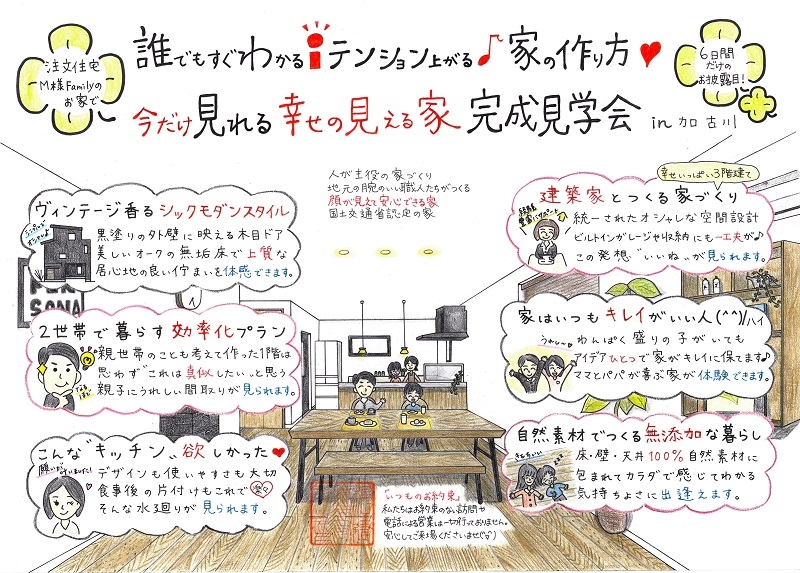 注文住宅
M様Familyの
お家で
誰でもすぐわかるiテンション上がる♪家の作り方♥
6日間
だけの
お披露目!
今だけ見れる幸せの見える家 完成見学会 in 加古川
人が主役の家づくり
地元の腕のいい職人たちがつくる
顔が見えて安心できる家
国土交通省認定の家
ヴィンテージ香るシックモダンスタイル
黒塗りの外壁に映える木目ドア
美しいオークの無垢床で上質な
居心地の良い佇まいを体感できます。
SONA
2世帯で暮らす効率化プラン
親世帯のことも考えて作った1階は
思わず"これは真似したい"と思う
親子にうれしい間取りが見られます。
なるほど
こんな"キッチン"欲しかった♥
願いが叶いました!
デザインも使いやすさも大切
食事後の片付けもこれで楽々
そんな水廻りが見られます。
幸せいっぱい3階建て
建築家とつくる家づくり
統一されたオシャレな空間設計
ビルトインガレージや収納にも一工夫が♪
この発想"いいね"が見られます。
家はいつもキレイがいい人(^^)/ハイ
うれしー♥
わんぱく盛りの子がいても
アイデアひとつで家がキレイに保てます♪
ママとパパが喜ぶ家が体験できます。
自然素材でつくる無添加な暮らし
きもちいい
床・壁・天井100%自然素材に
包まれてカラダで感じてわかる
気持ちよさに出逢えます。
「いつものお約束」
私たちはお約束のない訪問や
電話による営業は一切行っておりません。
安心してご来場くださいませ(^^)